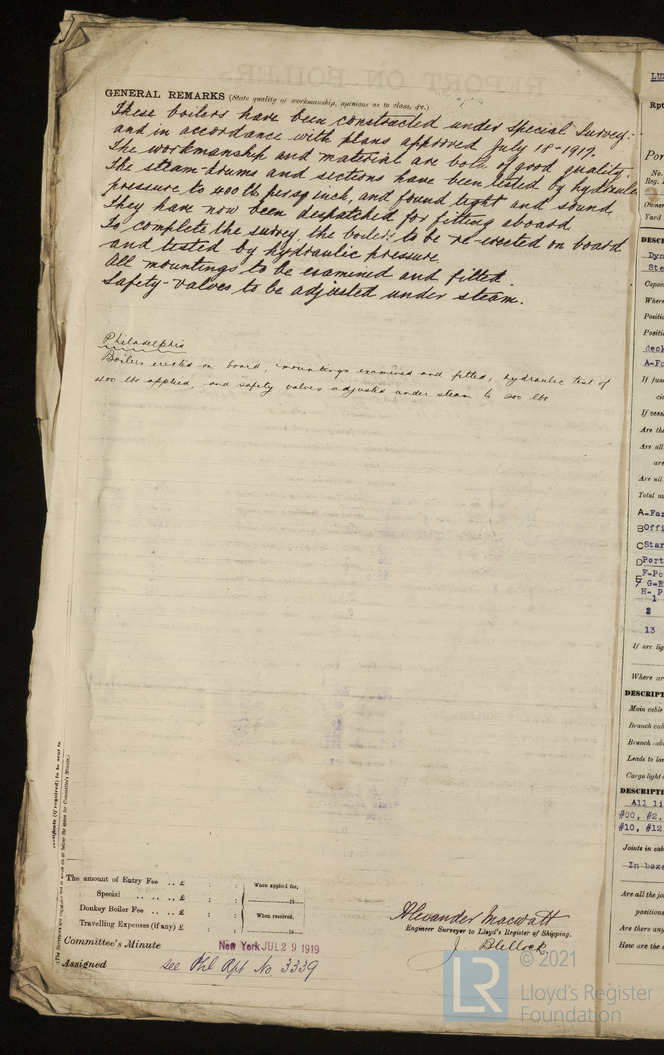 GENERAL REMARKS (State quality of workmanship, opinions as to class, &c.)
These boilers have been constructed under Special Survey.
and in accordance with plans approved July 18-1917.
The workmanship and material are both of good quality.
The steam-drums and sections have been tested by hydraulic
pressure to 400 lb per sq inch, and found tight and sound.
They have now been despatched for fitting aboard.
To complete the survey the boilers to be re-erected on board
and tested by hydraulic pressure.
All mountings to be examined and fitted.
Safety-valves to be adjusted under steam.
Philadelphia
Boilers erected on board, mountings examined and fitted, hydraulic test of
400 lbs applied, and safety valves adjusted under steam to 200 lbs
The amount of Entry Fee .. £ : :
Special .. .. £ : :
Donkey Boiler Fee .. .. £ : :
Travelling Expenses (if any) £ : :
When applied for,
19
When received,
19
Alexander Macwatt
Engineer Surveyor to Lloyd's Register of Shipping.
Committee's Minute
New York JUL 29 1919
Assigned
see Phl Rpt No 3339
© 2021
LR
Lloyd's Register
Foundation
Rpt
No.
Reg.
Owner
Yard
DESCR
Dyn
Ste
Capac
Where
Positio
Positio
deck
A-Fo
If fus
cir
If vess
Are the
Are all
are
Are all
Total nu
A-For
B Offi
C Star
D Port
F-Po
G-E
H- P
1
2
13
If arc lig
Where ar
DESCRIPT
Main cable
Branch cab
Branch cab
Leads to la
Cargo light c
DESCRIPTI
All li
#00, #2,
#10, #12
Joints in cab
In boxe
Are all the jo
position
Are there any
How are the c